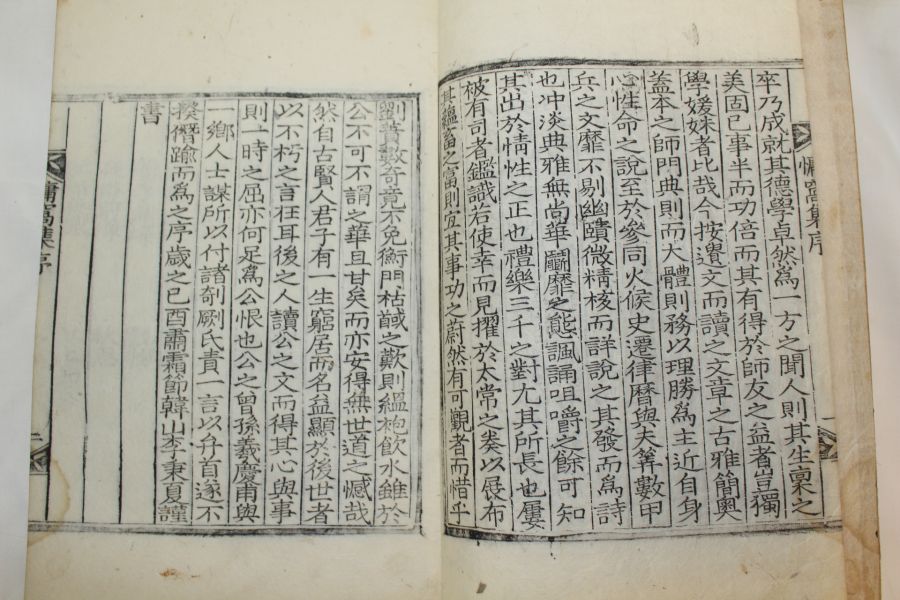 卒乃成就其德學卓然爲一方之聞人則其生稟之
美固已事半而功倍而其有得於師友之益者豈獨
學媛姝者比哉今按遺文而讀之文章之古雅簡奧
蓋本之師門典則而大體則務以理勝爲主近自身
心性命之說至於參同火候史遷律曆與夫筭數甲
兵之文靡不剔幽賾微精核而詳說之其發而爲詩
也冲淡典雅無尚華鬪靡之態諷誦咀嚼之餘可知
其出於情性之正也禮樂三千之對尤其所長也屢
被有司者鑑識若使幸而見擢於太常之奏以展布
其蘊畜之富則宜其事功之蔚然有可觀者而惜乎
劉蕡數奇竟不免衡門枯馘之歎則縕袍飮水雖於
公不可不謂之華且甘矣而亦安得無世道之憾哉
然自古賢人君子有一生窮居而名益顯於後世者
以不朽之言在耳後之人讀公之文而得其心與事
則一時之屈亦何足爲公恨也公之曾孫羲慶甫與
一鄕人士謀所以付諸剞劂氏責一言以弁首遂不
揆僭踰而爲之序歲之己酉肅霜節韓山李秉夏謹
書
窩集序
窩集序
二